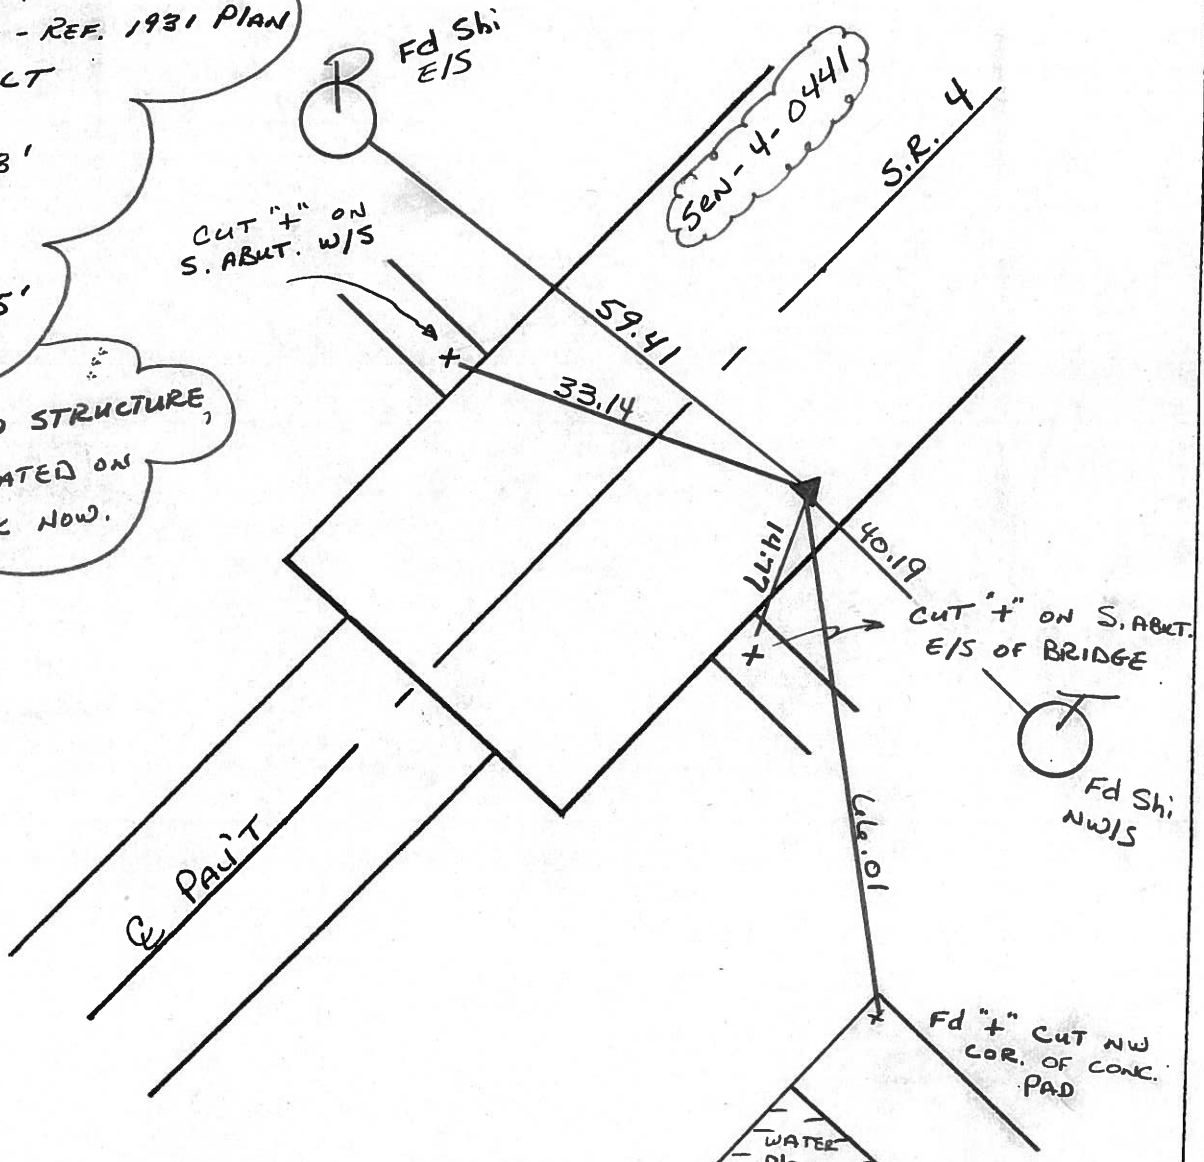 - REF. 1931 PLAN
CT
3'
5'
STRUCTURE,
ATED ON
NOW.
Fd Shi
E/S
SEN-4-0441
S.R. 4
CUT "+" ON
S. ABUT. W/S
59.41
33.14
14.77
40.19
CUT "+" ON S. ABUT.
E/S OF BRIDGE
Fd Shi
NW/S
66.01
℄ PAV'T
Fd "+" CUT NW
COR. OF CONC.
PAD
WATER